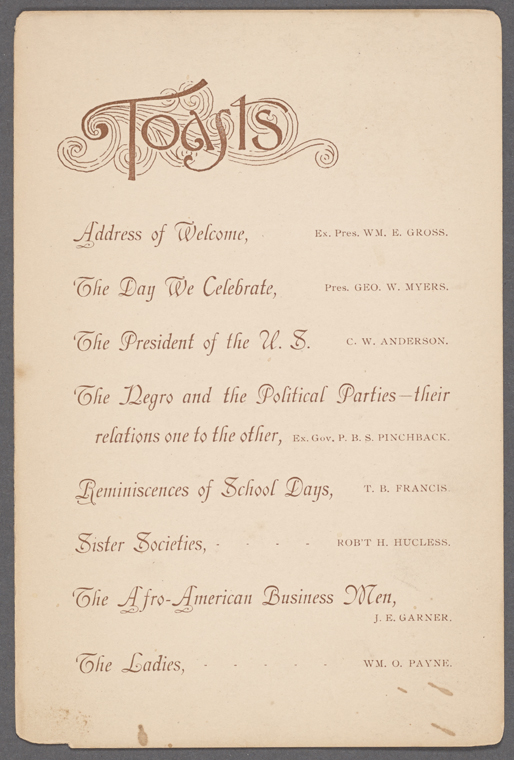 Toasts
Address of Welcome, Ex. Pres. WM. E. GROSS.
The Day We Celebrate, Pres. GEO. W. MYERS.
The President of the U. S. C. W. ANDERSON.
The Negro and the Political Parties—their
relations one to the other, Ex. Gov. P. B. S. PINCHBACK.
Reminiscences of School Days, T. B. FRANCIS
Sister Societies, - - - - ROB'T H. HUCLESS.
The Afro-American Business Men,
J. E. GARNER.
The Ladies, - - - - WM. O. PAYNE.